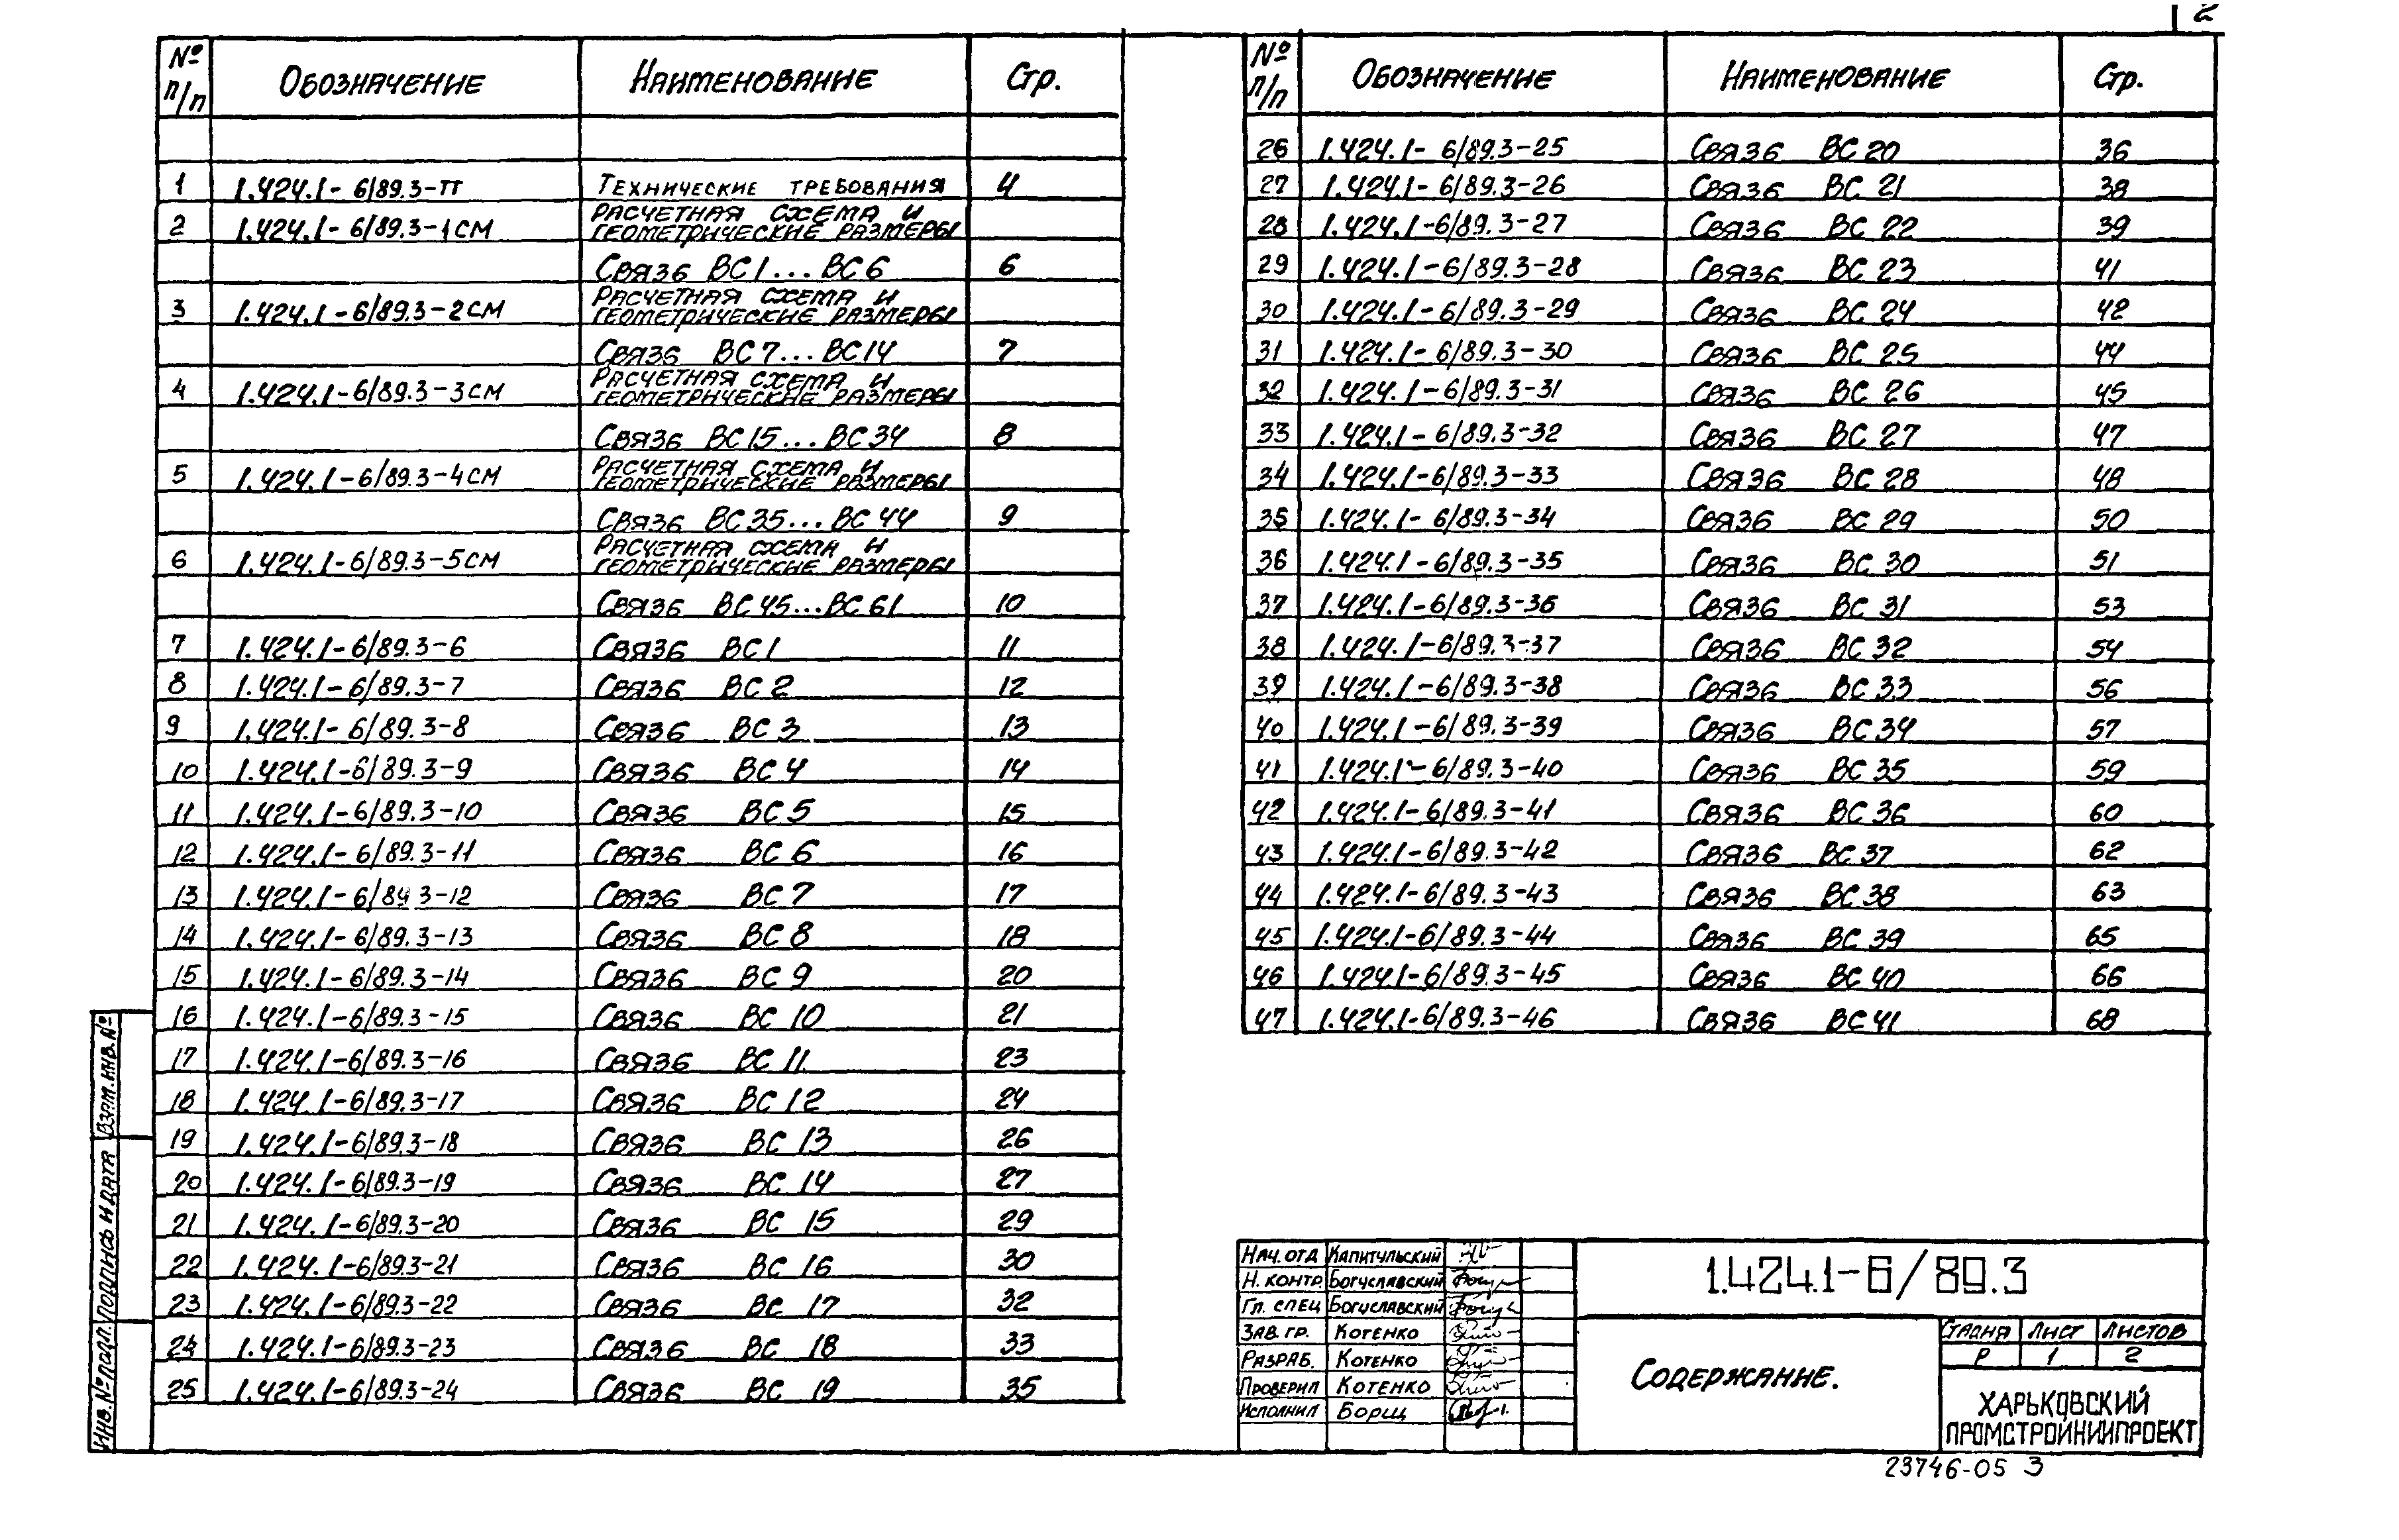 2
№ п/п Обозначение Наименование Стр.
1 1.424.1-6/89.3-ТТ Технические требования 4
2 1.424.1-6/89.3-1СМ Расчетная схема и
геометрические размеры
Связь ВС1...ВС6 6
3 1.424.1-6/89.3-2СМ Расчетная схема и
геометрические размеры
Связь ВС7...ВС14 7
4 1.424.1-6/89.3-3СМ Расчетная схема и
геометрические размеры
Связь ВС15...ВС34 8
5 1.424.1-6/89.3-4СМ Расчетная схема и
геометрические размеры
Связь ВС35...ВС44 9
6 1.424.1-6/89.3-5СМ Расчетная схема и
геометрические размеры
Связь ВС45...ВС61 10
7 1.424.1-6/89.3-6 Связь ВС1 11
8 1.424.1-6/89.3-7 Связь ВС2 12
9 1.424.1-6/89.3-8 Связь ВС3 13
10 1.424.1-6/89.3-9 Связь ВС4 14
11 1.424.1-6/89.3-10 Связь ВС5 15
12 1.424.1-6/89.3-11 Связь ВС6 16
13 1.424.1-6/89.3-12 Связь ВС7 17
14 1.424.1-6/89.3-13 Связь ВС8 18
15 1.424.1-6/89.3-14 Связь ВС9 20
16 1.424.1-6/89.3-15 Связь ВС10 21
17 1.424.1-6/89.3-16 Связь ВС11 23
18 1.424.1-6/89.3-17 Связь ВС12 24
19 1.424.1-6/89.3-18 Связь ВС13 26
20 1.424.1-6/89.3-19 Связь ВС14 27
21 1.424.1-6/89.3-20 Связь ВС15 29
22 1.424.1-6/89.3-21 Связь ВС16 30
23 1.424.1-6/89.3-22 Связь ВС17 32
24 1.424.1-6/89.3-23 Связь ВС18 33
25 1.424.1-6/89.3-24 Связь ВС19 35
№ п/п Обозначение Наименование Стр.
26 1.424.1-6/89.3-25 Связь ВС20 36
27 1.424.1-6/89.3-26 Связь ВС21 38
28 1.424.1-6/89.3-27 Связь ВС22 39
29 1.424.1-6/89.3-28 Связь ВС23 41
30 1.424.1-6/89.3-29 Связь ВС24 42
31 1.424.1-6/89.3-30 Связь ВС25 44
32 1.424.1-6/89.3-31 Связь ВС26 45
33 1.424.1-6/89.3-32 Связь ВС27 47
34 1.424.1-6/89.3-33 Связь ВС28 48
35 1.424.1-6/89.3-34 Связь ВС29 50
36 1.424.1-6/89.3-35 Связь ВС30 51
37 1.424.1-6/89.3-36 Связь ВС31 53
38 1.424.1-6/89.3-37 Связь ВС32 54
39 1.424.1-6/89.3-38 Связь ВС33 56
40 1.424.1-6/89.3-39 Связь ВС34 57
41 1.424.1-6/89.3-40 Связь ВС35 59
42 1.424.1-6/89.3-41 Связь ВС36 60
43 1.424.1-6/89.3-42 Связь ВС37 62
44 1.424.1-6/89.3-43 Связь ВС38 63
45 1.424.1-6/89.3-44 Связь ВС39 65
46 1.424.1-6/89.3-45 Связь ВС40 66
47 1.424.1-6/89.3-46 Связь ВС41 68
Взам.инв.№
Подпись и дата
Инв.№подл.
Нач.отд Капитульский
Н.контр. Богуславский
Гл.спец Богуславский
Зав.гр. Котенко
Разраб. Котенко
Проверил Котенко
Исполнил Борщ
1.424.1-6/89.3
Содержание.
Стадия Лист Листов
Р 1 2
ХАРЬКОВСКИЙ
ПРОМСТРОЙНИИПРОЕКТ
23746-05 3